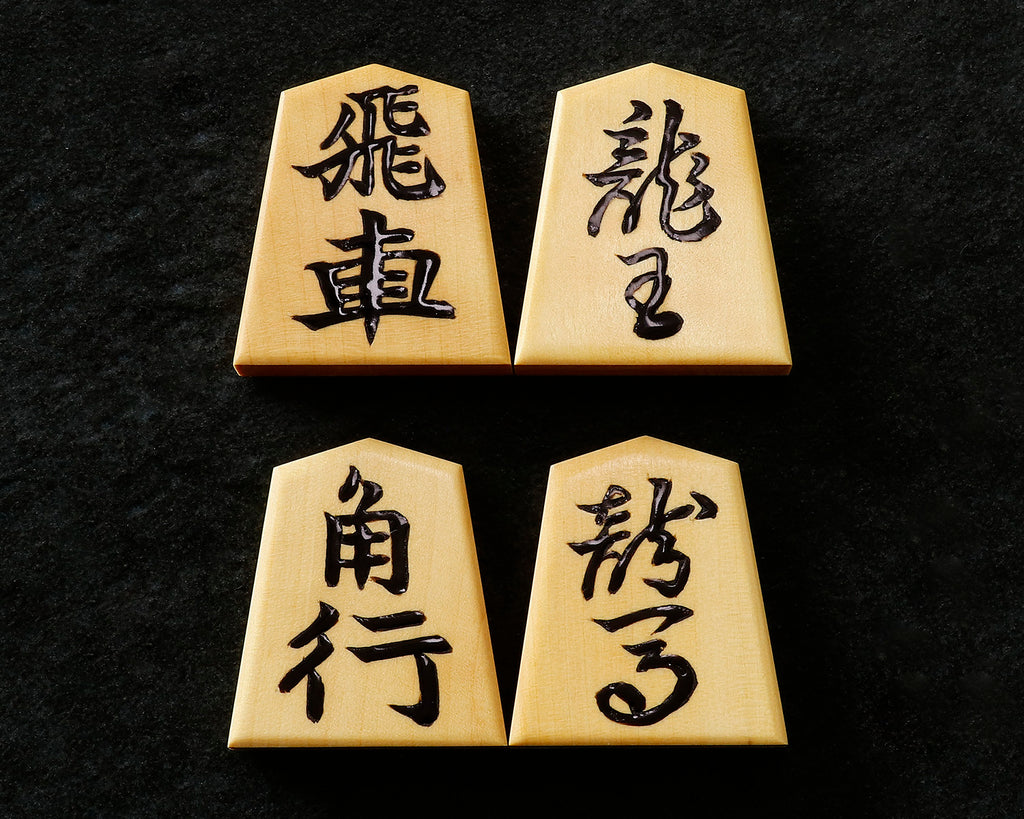 飛車
龍王
角行
龍馬